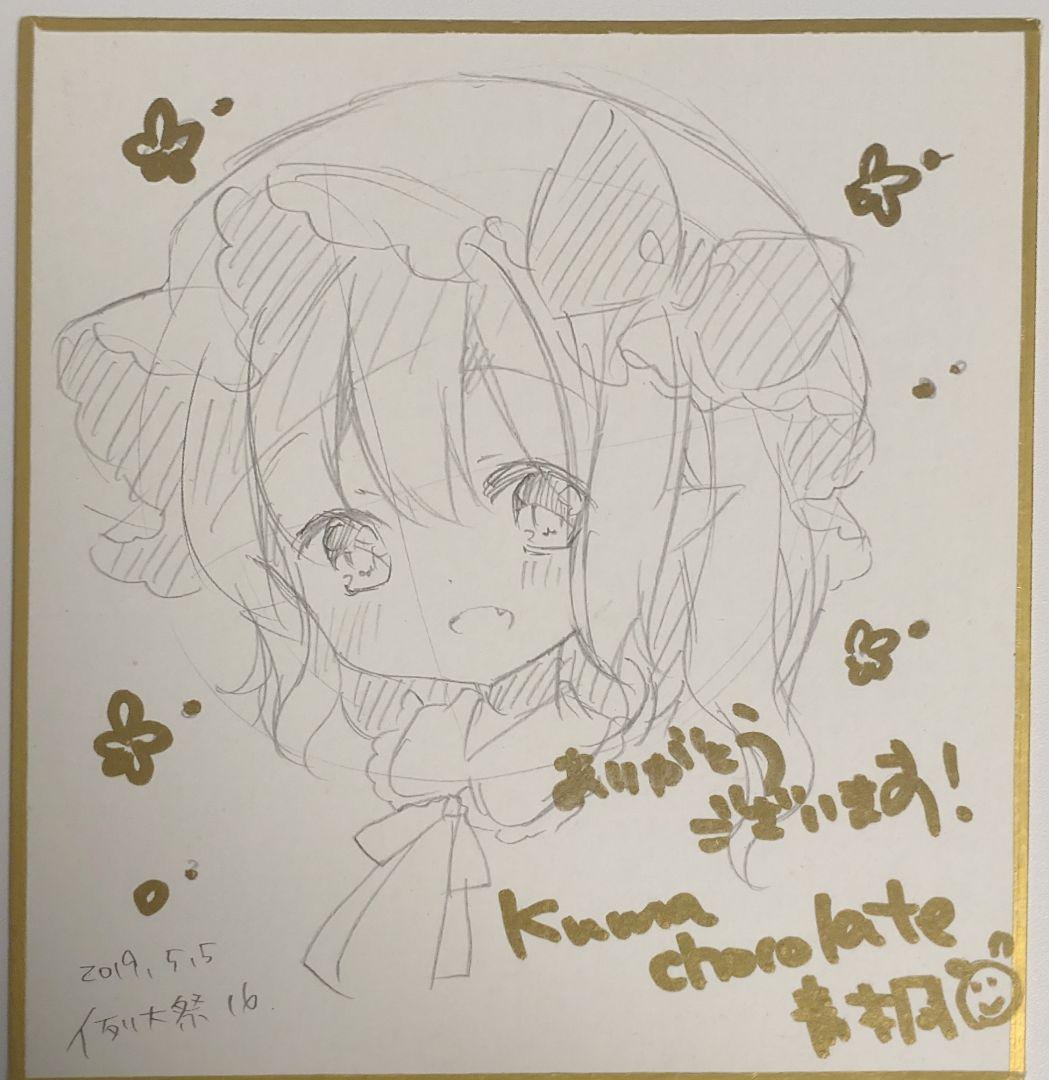 ありがとう
ございます!
Kuma
chocolate
2019.5.5
例大祭 16